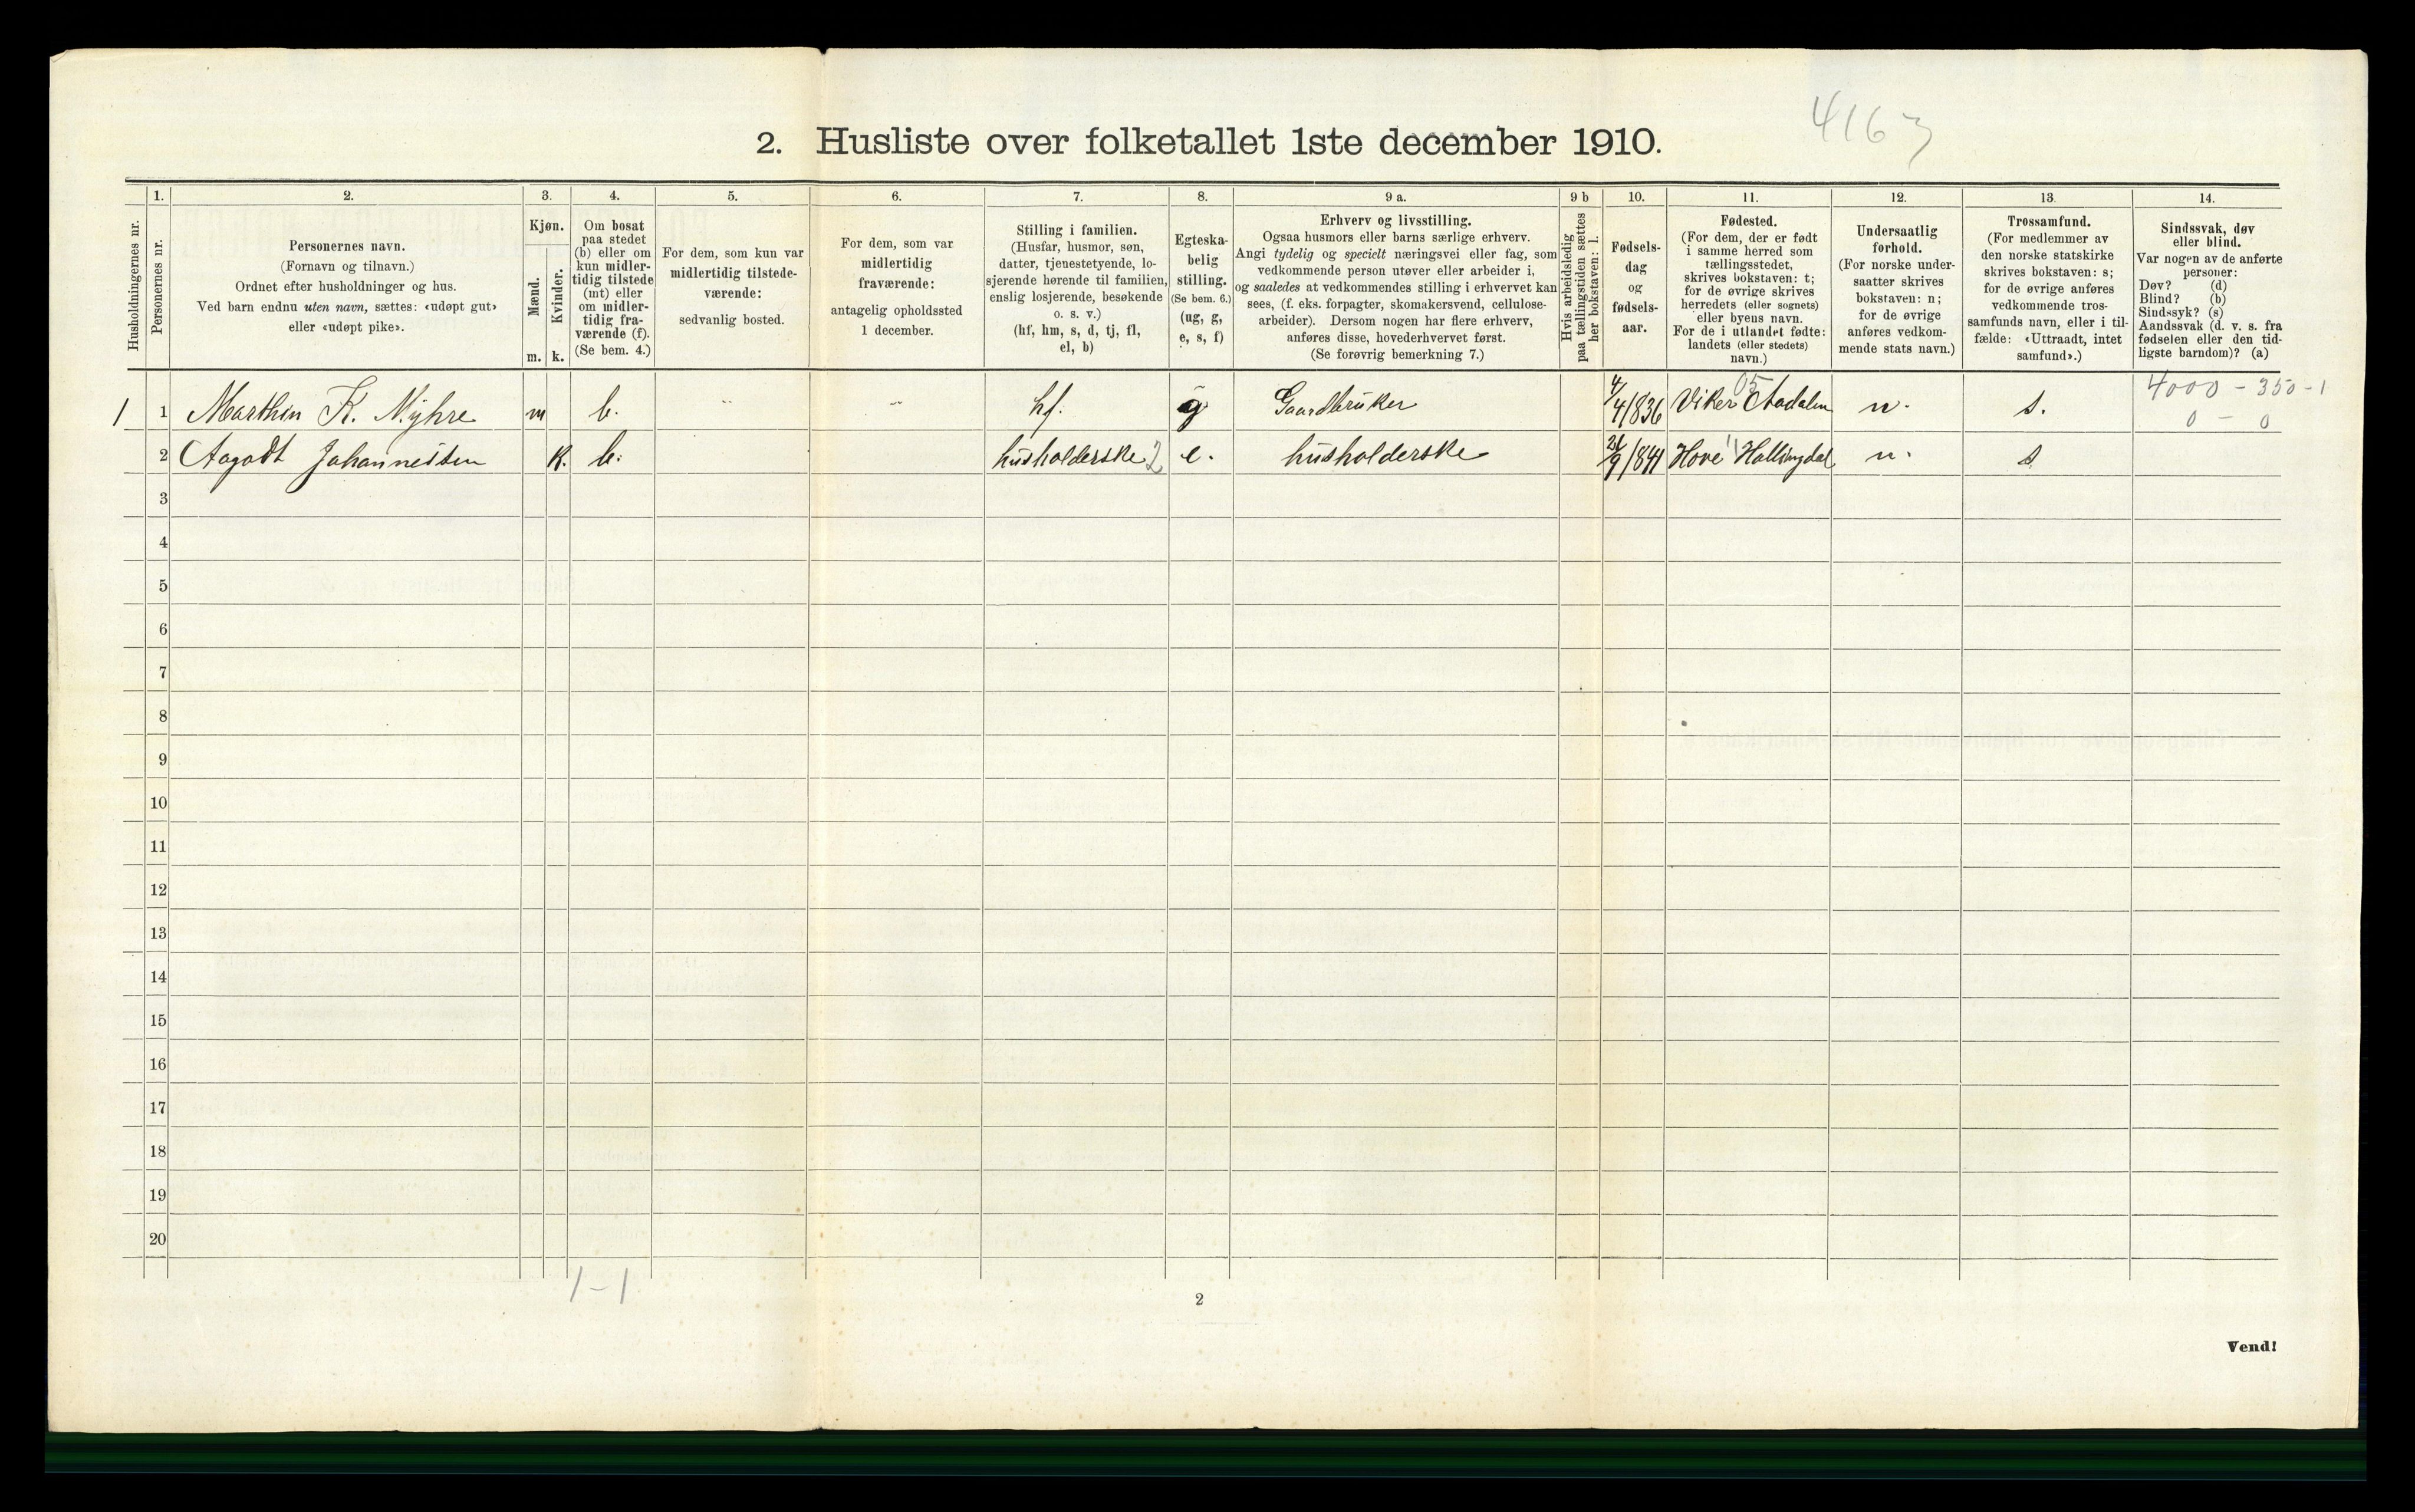 4163
2. Husliste over folketallet 1ste december 1910.
Husholdningernes nr.
1.
Personernes nr.
2.
Personernes navn.
(Fornavn og tilnavn.)
Ordnet efter husholdninger og hus.
Ved barn endnu uten navn, sættes: «udøpt gut»
eller «udøpt pike».
3.
Kjøn.
Mænd.
Kvinder.
m. k.
4.
Om bosat
paa stedet
(b) eller om
kun midler-
tidig tilstede
(mt) eller
om midler-
tidig fra-
værende (f).
(Se bem. 4.)
5.
For dem, som kun var
midlertidig tilstede-
værende:
sedvanlig bosted.
6.
For dem, som var
midlertidig
fraværende:
antagelig opholdssted
1 december.
7.
Stilling i familien.
(Husfar, husmor, søn,
datter, tjenestetyende, lo-
sjerende hørende til familien,
enslig losjerende, besøkende
o. s. v.)
(hf, hm, s, d, tj, fl,
el, b)
8.
Egteska-
belig
stilling.
(Se bem. 6.)
(ug, g,
e, s, f)
9 a.
Erhverv og livsstilling.
Ogsaa husmors eller barns særlige erhverv.
Angi tydelig og specielt næringsvei eller fag, som
vedkommende person utøver eller arbeider i,
og saaledes at vedkommendes stilling i erhvervet kan
sees, (f. eks. forpagter, skomakersvend, cellulose-
arbeider). Dersom nogen har flere erhverv,
anføres disse, hovederhvervet først.
(Se forøvrig bemerkning 7.)
9 b
Hvis arbeidsledig
paa tællingstiden sættes
her bokstaven: l.
10.
Fødsels-
dag
og
fødsels-
aar.
11.
Fødested.
(For dem, der er født
i samme herred som
tællingsstedet,
skrives bokstaven: t;
for de øvrige skrives
herredets (eller sognets)
eller byens navn.
For de i utlandet fødte:
landets (eller stedets)
navn.)
12.
Undersaatlig
forhold.
(For norske under-
saatter skrives
bokstaven: n;
for de øvrige
anføres vedkom-
mende stats navn.)
13.
Trossamfund.
(For medlemmer av
den norske statskirke
skrives bokstaven: s;
for de øvrige anføres
vedkommende tros-
samfunds navn, eller i til-
fælde: «Uttraadt, intet
samfund».)
14.
Sindssvak, døv
eller blind.
Var nogen av de anførte
personer:
Døv? (d)
Blind? (b)
Sindssyk? (s)
Aandssvak (d. v. s. fra
fødselen eller den tid-
ligste barndom)? (a)
1 1 Marthin K. Myhre m b. hf. g Gaardbruker 4/4/836 Viker Aadalen 05 n. s. 4000 - 350 - 1
0 - 0
2 Aagodt Johannessen k. b. husholderske 2 e. husholderske /9/841 Hove Hallingdal n. s
3
4
5
6
7
8
9
10
11
12
13
14
15
16
17
18
19
20
1 - 1
2
Vend!